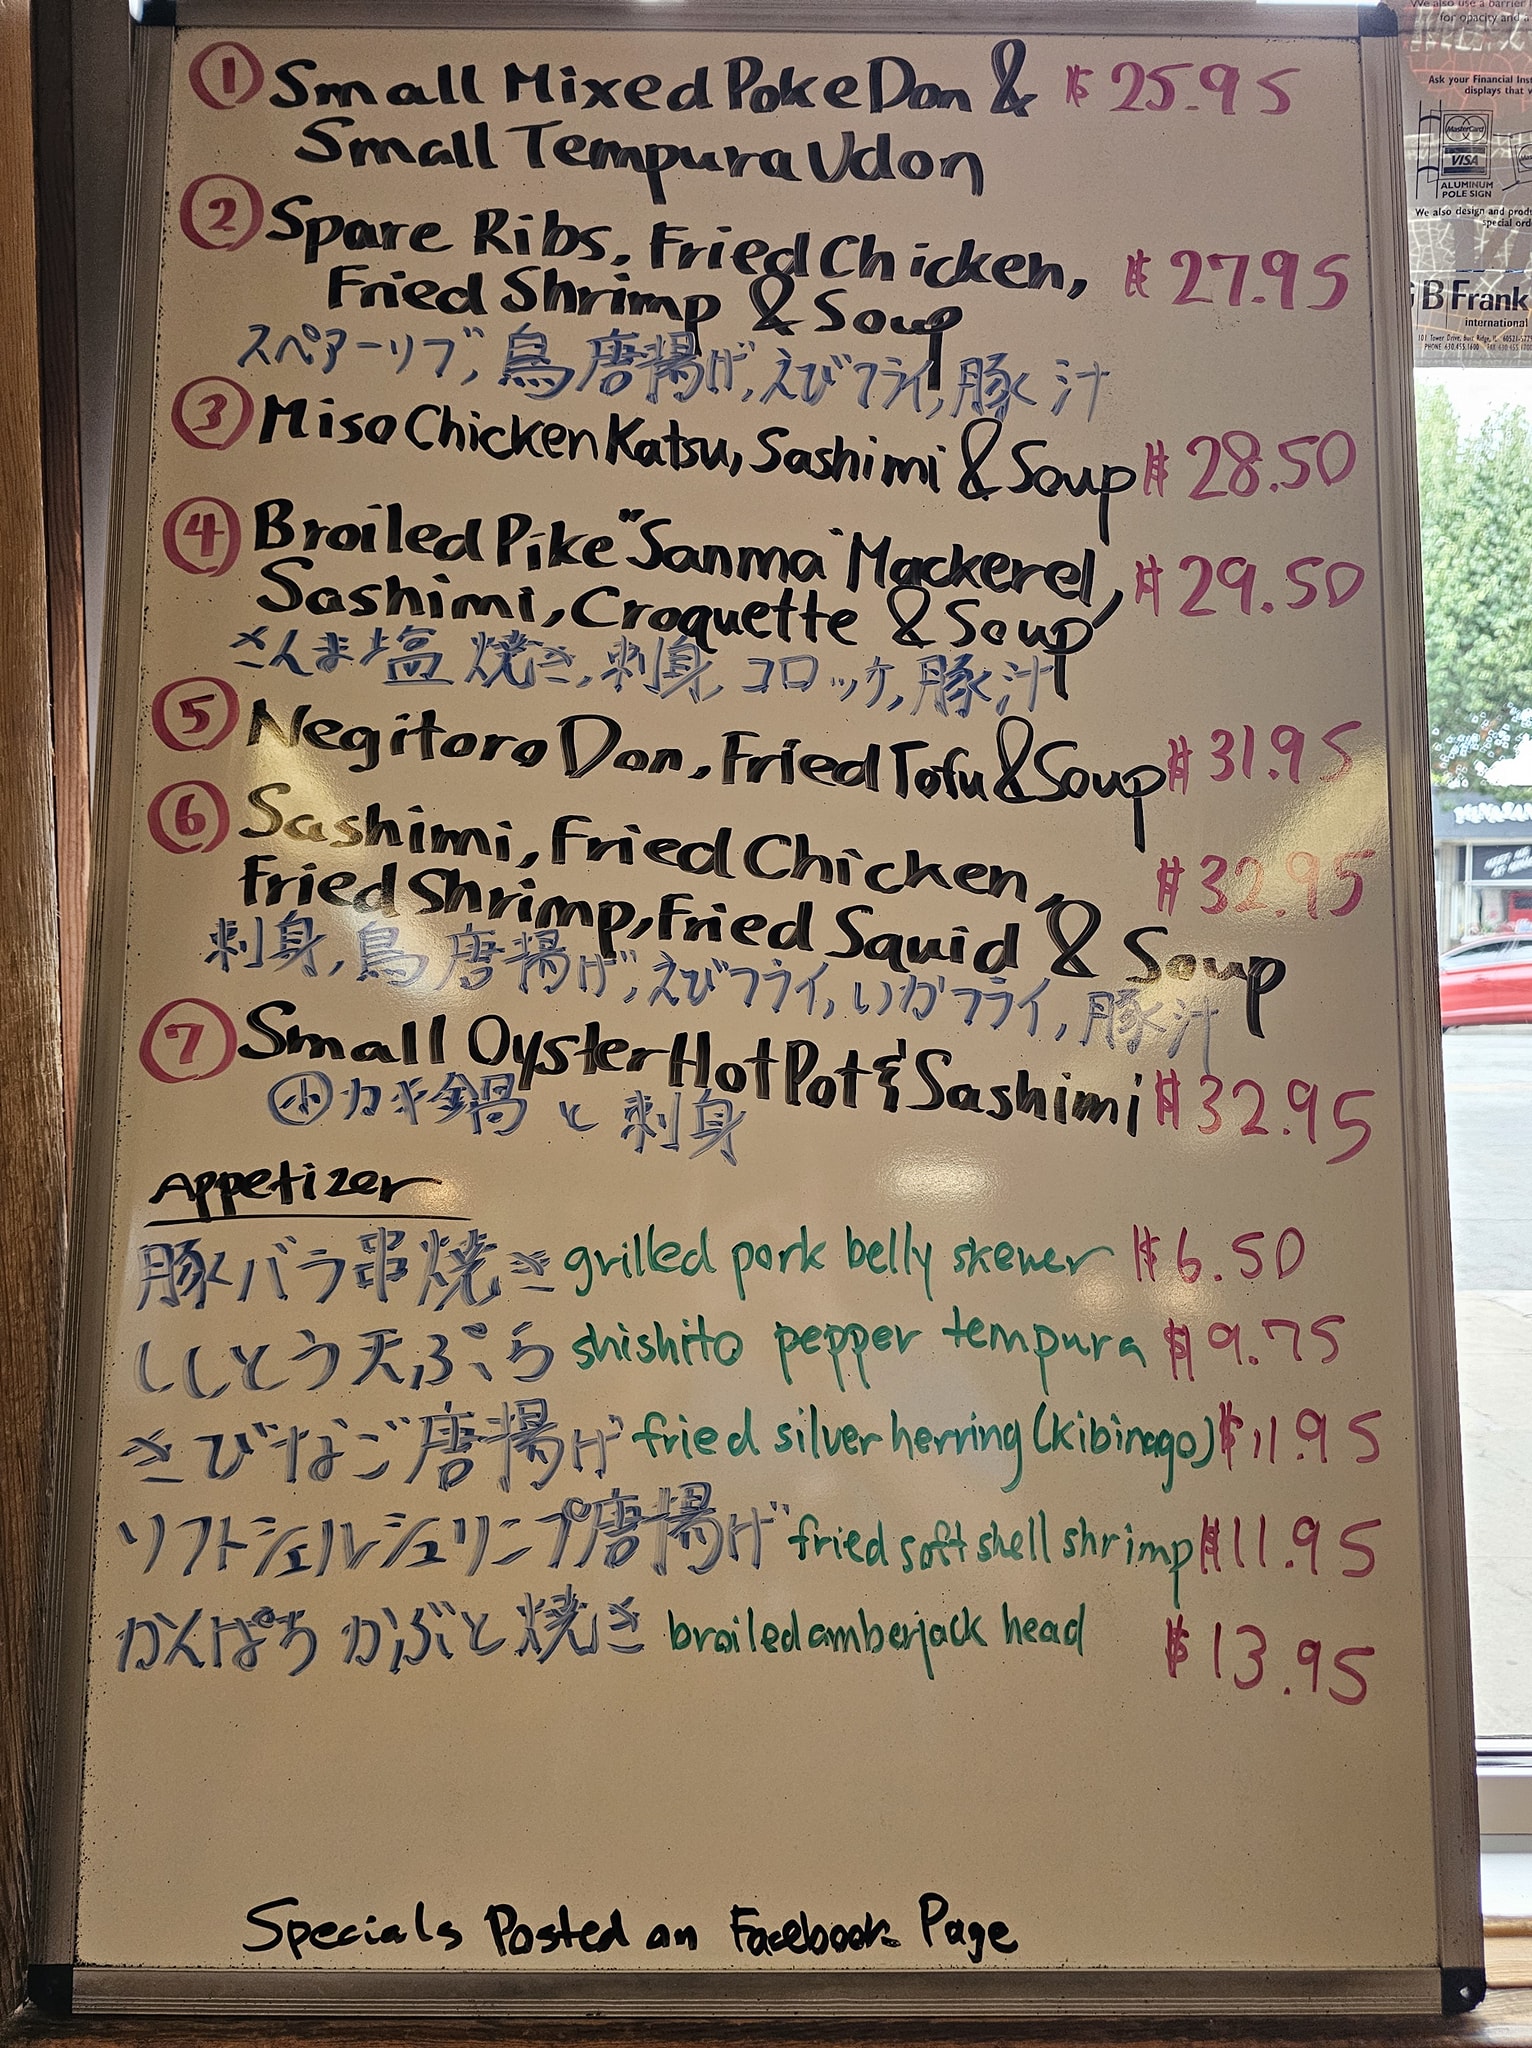 ① Small Mixed Poke Don & $25.95
Small Tempura Udon
② Spare Ribs, Fried Chicken, $27.95
Fried Shrimp & Soup
スペアーリブ, 鳥唐揚げ, えびフライ, 豚汁
③ Miso Chicken Katsu, Sashimi & Soup $28.50
④ Broiled Pike "Sanma" Mackerel, $29.50
Sashimi, Croquette & Soup
さんま塩焼き, 刺身, コロッケ, 豚汁
⑤ Negitoro Don, Fried Tofu & Soup $31.95
⑥ Sashimi, Fried Chicken, $32.95
Fried Shrimp, Fried Squid & Soup
刺身, 鳥唐揚げ, えびフライ, いかフライ, 豚汁
⑦ Small Oyster Hot Pot & Sashimi $32.95
小カキ鍋と刺身
Appetizer
豚バラ串焼き grilled pork belly skewer $6.50
ししとう天ぷら shishito pepper tempura $9.75
きびなご唐揚げ fried silver herring (kibinago) $11.95
ソフトシェルシュリンプ唐揚げ fried soft shell shrimp $11.95
かんぱちかぶと焼き broiled amberjack head $13.95
Specials Posted on Facebook Page
We also use a barrier
for opacity and a
Ask your Financial Inst
displays that
MasterCard
VISA
ALUMINUM
POLE SIGN
We also design and prod
special ord
B Frank
international